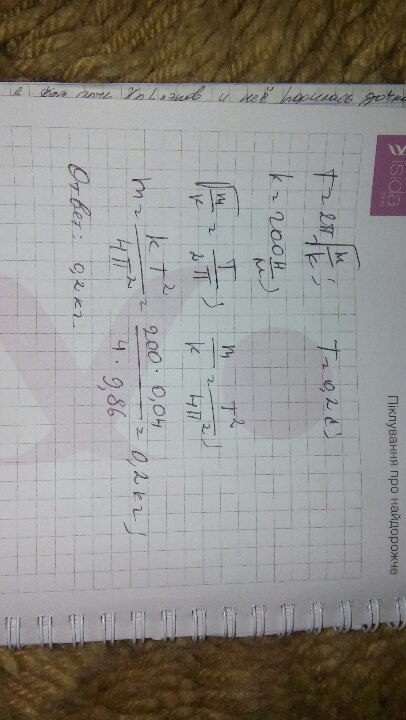 isida
Піклування про найдорожче
T = 2π√(m/k); T = 0,2 с;
k = 200 Н/м;
√(m/k) = T/2π; m/k = T²/4π²;
m = kT²/4π² = 200 · 0,04/4 · 9,86 = 0,2 кг;
Ответ: 0,2 кг.